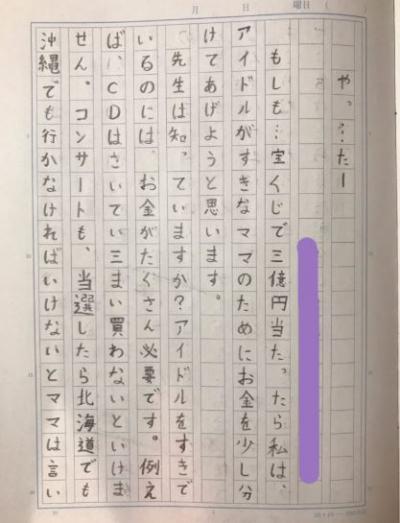 月 日 曜日（
やっ…たー
もしも…宝くじで三億円当たったら私は、
アイドルがすきなママのためにお金を少し分
けてあげようと思います。
先生は知っていますか？アイドルをすきで
いるのには、お金がたくさん必要です。例え
ば、CDはさいてい三まい買わないといけま
せん。コンサートも、当選したら北海道でも
沖縄でも行かなければいけないとママは言い